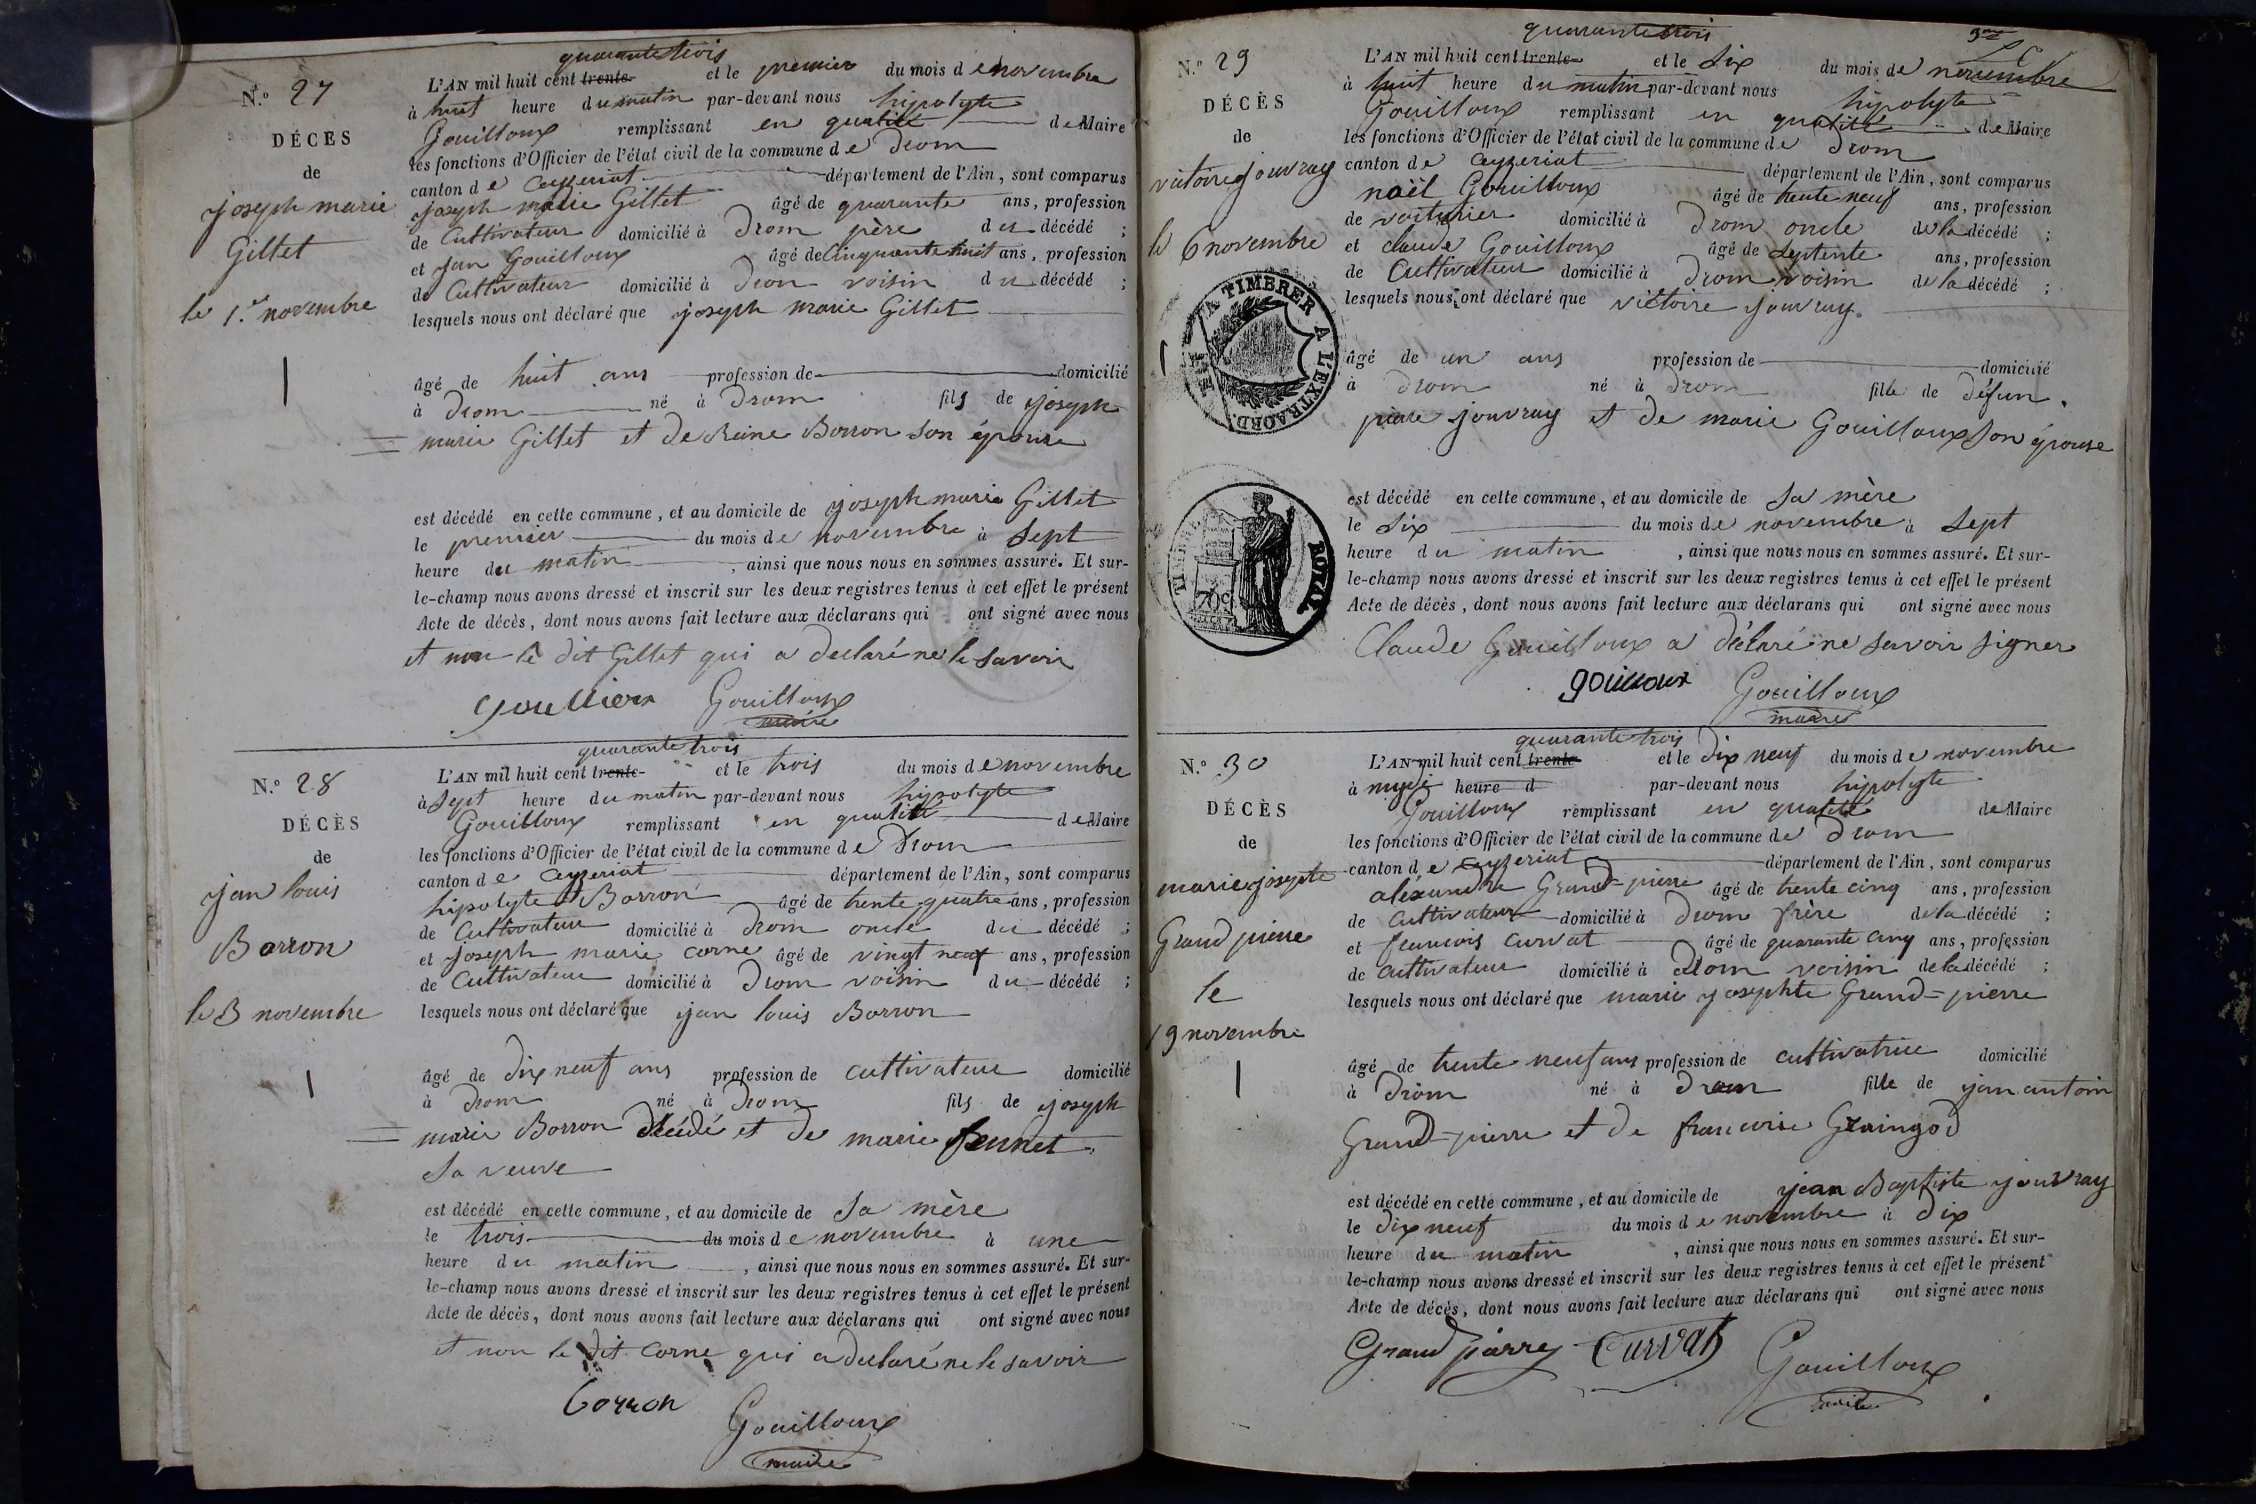 quarante trois
N.º 27
L'AN mil huit cent trente- et le premier du mois de novembre
à huit heure du matin par-devant nous hipolyte
Gouilloux remplissant en qualité de Maire
les fonctions d'Officier de l'état civil de la commune de Drom
canton de Ceyzeriat département de l'Ain, sont comparus
joseph marie Gillet âgé de quarante ans, profession
de Cultivateur domicilié à Drom père du décédé ;
et jan Gouilloux âgé de Cinquante huit ans, profession
de Cultivateur domicilié à Drom voisin du décédé ;
lesquels nous ont déclaré que joseph marie Gillet
DÉCÈS
de
joseph marie
Gillet
le 1.er novembre
âgé de huit ans profession de domicilié
à Drom né à Drom fils de joseph
marie Gillet et de Reine Borron son épouse
est décédé en cette commune, et au domicile de joseph marie Gillet
le premier du mois de novembre à sept
heure du matin, ainsi que nous nous en sommes assuré. Et sur-
le-champ nous avons dressé et inscrit sur les deux registres tenus à cet effet le présent
Acte de décès, dont nous avons fait lecture aux déclarans qui ont signé avec nous
et non le dit Gillet qui a declaré ne le savoir
Gouilloux
maire
quarante trois
N.º 28
L'AN mil huit cent trente- et le trois du mois de novembre
à sept heure du matin par-devant nous hipolyte
Gouilloux remplissant en qualité de Maire
les fonctions d'Officier de l'état civil de la commune de Drom
canton de Ceyzeriat département de l'Ain, sont comparus
hipolyte Borron âgé de trente quatre ans, profession
de Cultivateur domicilié à Drom oncle du décédé ;
et joseph marie Corne âgé de vingt neuf ans, profession
de Cultivateur domicilié à Drom voisin du décédé ;
lesquels nous ont déclaré que jan louis Borron
DÉCÈS
de
jan louis
Borron
le 3 novembre
âgé de dix neuf ans profession de cultivateur domicilié
à Drom né à Drom fils de joseph
marie Borron décédé et de marie
sa veuve
est décédé en cette commune, et au domicile de sa mère
le trois du mois de novembre à une
heure du matin, ainsi que nous nous en sommes assuré. Et sur-
le-champ nous avons dressé et inscrit sur les deux registres tenus à cet effet le présent
Acte de décès, dont nous avons fait lecture aux déclarans qui ont signé avec nous
et non le dit Corne qui a declaré ne le savoir
borron
Gouilloux
maire
quarante trois
N.º 29
L'AN mil huit cent trente- et le six du mois de novembre
à huit heure du matin par-devant nous hipolyte
Gouilloux remplissant en qualité de Maire
les fonctions d'Officier de l'état civil de la commune de Drom
canton de Ceyzeriat département de l'Ain, sont comparus
noël Gouilloux âgé de trente neuf ans, profession
de voiturier domicilié à Drom oncle de la décédé ;
et claude Gouilloux âgé de septente ans, profession
de Cultivateur domicilié à Drom voisin de la décédé ;
lesquels nous ont déclaré que victoire jouvray
DÉCÈS
de
victoire jouvray
le 6 novembre
A TIMBRER A L'EXTRAORD.
âgé de un ans profession de domicilié
à Drom né à Drom fille de défun
piere jouvray et de marie Gouilloux son épouse
TIMBRE ROYAL
est décédé en cette commune, et au domicile de sa mère
le six du mois de novembre à sept
heure du matin, ainsi que nous nous en sommes assuré. Et sur-
le-champ nous avons dressé et inscrit sur les deux registres tenus à cet effet le présent
Acte de décès, dont nous avons fait lecture aux déclarans qui ont signé avec nous
Claude Gouilloux a déclaré ne savoir signer
gouilloux Gouilloux
maire
quarante trois
N.º 30
L'AN mil huit cent trente et le dix neuf du mois de novembre
à midi heure d par-devant nous hipolyte
Gouilloux remplissant en qualité de Maire
les fonctions d'Officier de l'état civil de la commune de Drom
canton de Ceyzeriat département de l'Ain, sont comparus
alexandre Grand-pierre âgé de trente cinq ans, profession
de Cultivateur domicilié à Drom frère de la décédé ;
et francois Curvat âgé de quarante cinq ans, profession
de cultivateur domicilié à Drom voisin de la décédé ;
lesquels nous ont déclaré que marie josephte Grand=pierre
DÉCÈS
de
marie josephte
Grand pierre
le
19 novembre
âgé de trente neuf ans profession de cultivatrice domicilié
à Drom né à Drom fille de jan antoin
Grand=pierre et de francoise Graingod
est décédé en cette commune, et au domicile de jean Baptiste jouvray
le dix neuf du mois de novembre à dix
heure du matin, ainsi que nous nous en sommes assuré. Et sur-
le-champ nous avons dressé et inscrit sur les deux registres tenus à cet effet le présent
Acte de décès, dont nous avons fait lecture aux déclarans qui ont signé avec nous
Curvat Gouilloux
maire